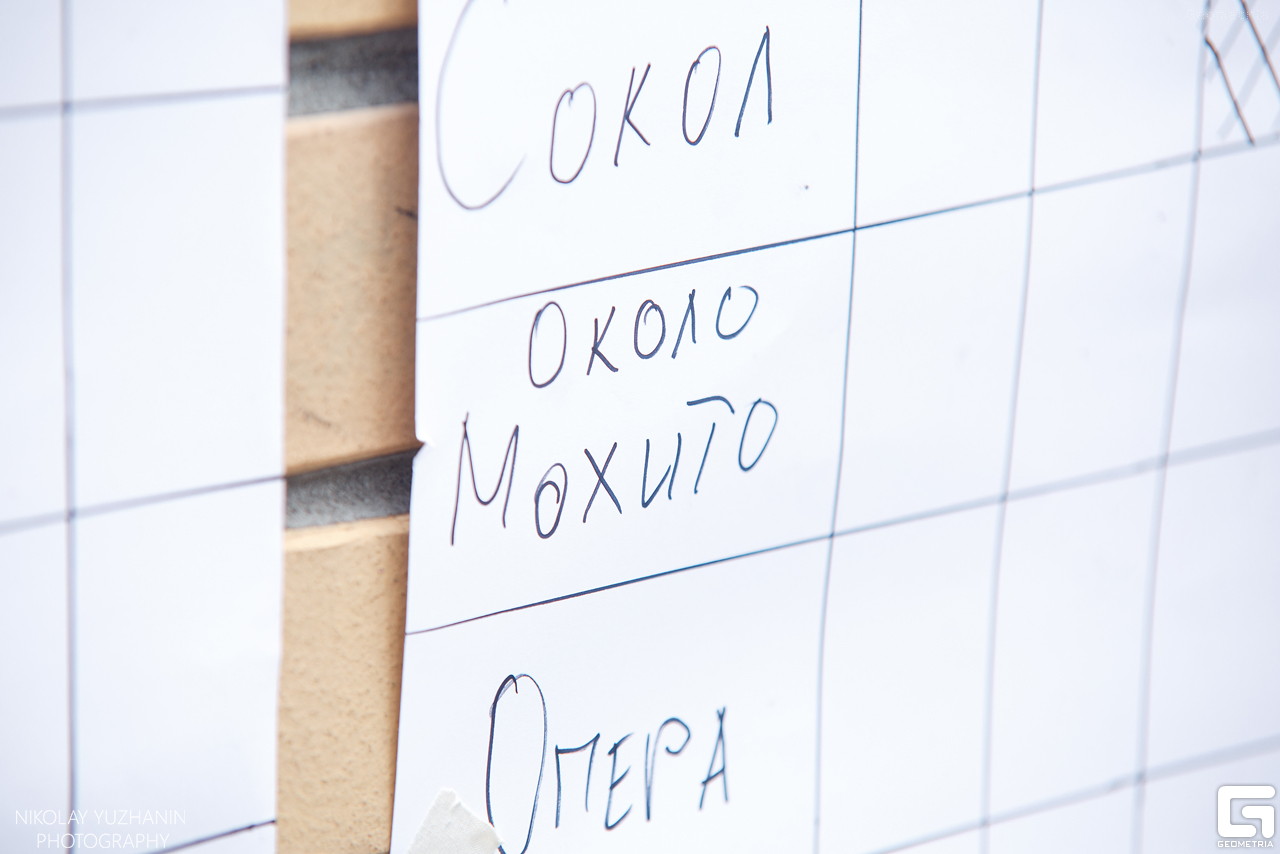 Сокол
Около
Мохито
Опера
NIKOLAY YUZHANIN
PHOTOGRAPHY
GEOMETRIA